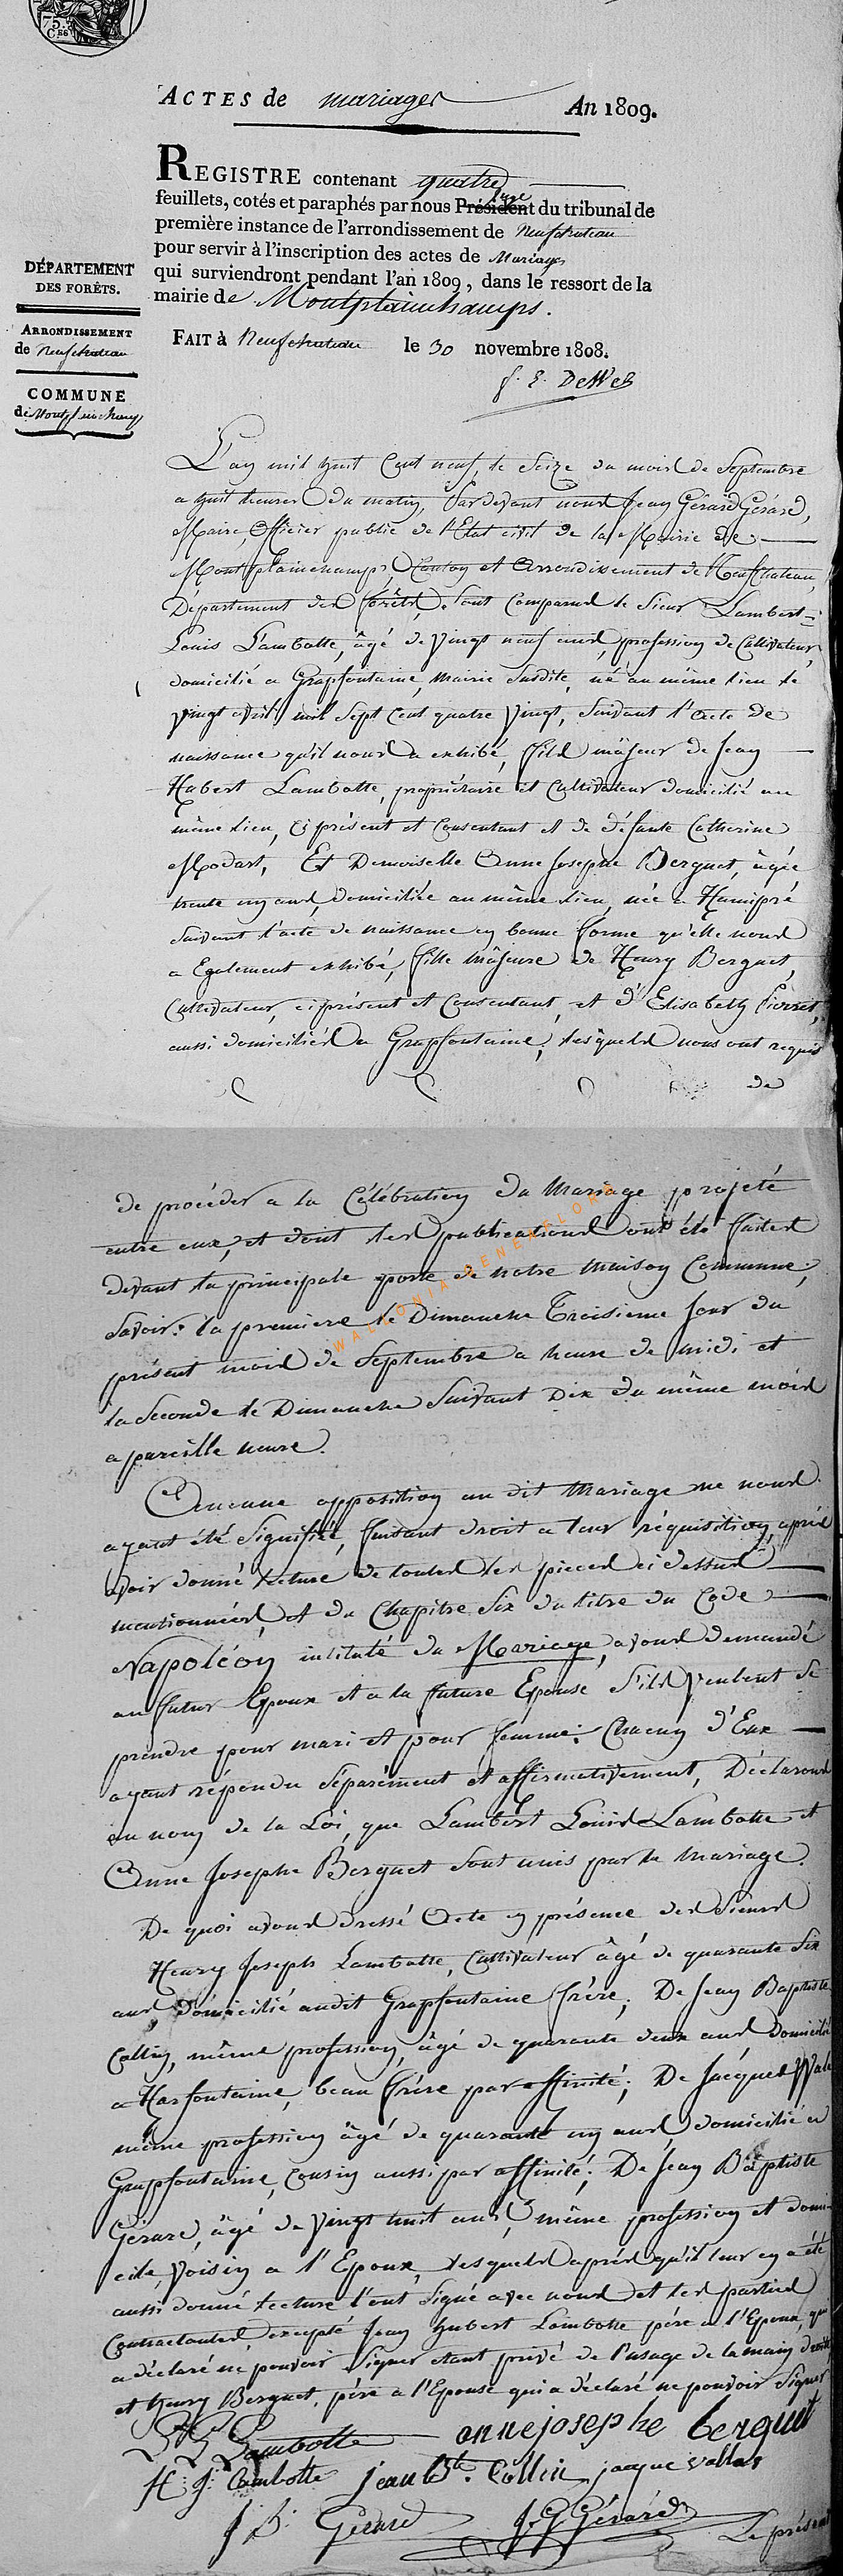 75.
Ces
ACTES de mariages An 1809.
REGISTRE contenant quatre
feuillets, cotés et paraphés par nous Président juge du tribunal de
première instance de l'arrondissement de Neufchateau
pour servir à l'inscription des actes de Mariages
qui surviendront pendant l'an 1809, dans le ressort de la
mairie de Montplainchamps.
FAIT à Neufchateau le 30 novembre 1808.
DÉPARTEMENT
DES FORÊTS.
ARRONDISSEMENT
de Neufchateau
COMMUNE
de Montplainchamps
L'an mil huit Cent neuf, le Seize du mois de Septembre
a huit heures du matin, Pardevant nous Jean Gérard Gérard,
Maire, Officier public de l'Etat civil de la Mairie de
Montplainchamps, Canton et Arrondissement de Neufchateau,
Département des forêts, Sont Comparus le Sieur Lambert=
Louis Lambotte, âgé de Vingt neuf ans, profession de Cultivateur,
domicilié a Grapfontaine, Mairie Susdite, né au même lieu le
Vingt avril mil Sept Cent quatre Vingt, Suivant l'acte de
naissance qu'il nous a exhibé, fils majeur de Jean
Hubert Lambotte, propriétaire et Cultivateur domicilié au
même lieu, Ci présent et Consentant et de défunte Catherine
Modart, Et Demoiselle Anne Josephe Berguet, âgée
trente un ans, domiciliée au même lieu, née a Hamipré
Suivant l'acte de naissance en bonne forme qu'elle nous
a Egalement exhibé, fille Majeure de Henry Berguet,
Cultivateur, ci présent et Consentant, et d'Elisabeth Pierret,
aussi domiciliés a Grapfontaine, lesquels nous ont requis
de
de procéder a la Célébration du Mariage projeté
entre eux, et dont les publications ont été faites
devant la principale porte de notre Maison Commune,
Savoir: la premiere le Dimanche Troisieme Jour du
présent mois de Septembre a heure de midi et
la Seconde le Dimanche Suivant Dix du même mois
a pareille heure.
Aucune opposition au dit Mariage ne nous
ayant été Signifiée, faisant droit a leur réquisition, après
avoir donné lecture de toutes les pieces ci dessus
mentionnées, et du Chapitre Six du titre du Code
Napoléon intitulé du Mariage, avons demandé
au futur Epoux et a la future Epouse S'ils Veulent Se
prendre pour mari et pour femme: Chacun d'Eux
ayant répondu Séparément et affirmativement, Déclarons
au nom de la Loi, que Lambert Louis Lambotte et
Anne Josephe Berguet Sont unis par le Mariage.
De quoi avons dressé Acte en présence des Sieurs
Henry Joseph Lambotte, Cultivateur âgé de quarante Six
ans, Domicilié audit Grapfontaine frère; De Jean Baptiste
Collin, même profession, âgé de quarante deux ans domicilié
a Harfontaine, beau frère par affinité; De Jacques
même profession âgé de quarante un ans, domicilié a
Grapfontaine, Cousin aussi par affinité; De Jean Baptiste
Gérard, âgé de Vingt huit ans, même profession et domi-
cile, Voisin a l'Epoux, lesquels après qu'il leur en a été
aussi donné lecture l'ont Signé avec nous et les parties
Contractantes, excepté Jean Hubert Lambotte père a l'Epoux, qui
a déclaré ne pouvoir Signer étant privé de l'usage de la main droite,
et henry Berguet, père a l'Epouse qui a déclaré ne pouvoir Signer
L L Lambotte anne josephe berguet
H: J: Lambotte jean bte. Collin jacque vallas
J: B: Gérard J. G Gérard
Le présent
WALLONIA GENEXPLORE